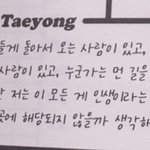 Taeyong
들게 돌아서 오는 사랑이 있고,
사랑이 있고, 누군가는 먼 길을
저는 이 모든 게 인생이라는
곳에 해당되지 않을까 생각하